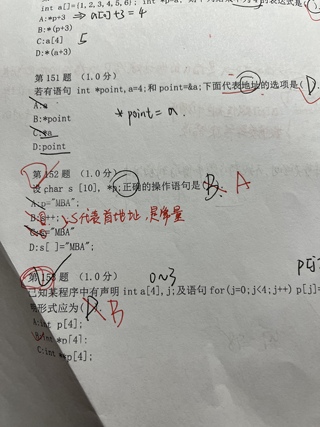 int a[]={1,2,3,4,5,6};
A:*p+3 ⇒ a[0]+3 = 4
B:*(p+3)
C:a[4] 5
D:*(a+3)
第151题 (1.0分)
若有语句 int *point,a=4;和 point=&a;下面代表地址的选项是( D
A:a
B:*point *point = a.
C:&a
D:point
第152题 (1.0分)
设char s [10], *p;正确的操作语句是 B. A
A:p="MBA";
B:s++; s代表首地址,是常量
D:s[ ]="MBA";
题 (1.0分) 0~3
已知某程序中有声明 int a[4],j;及语句 for(j=0;j<4;j++) p[j]=
形式应为( D. B
A:int p[4];
C:int **p[4];